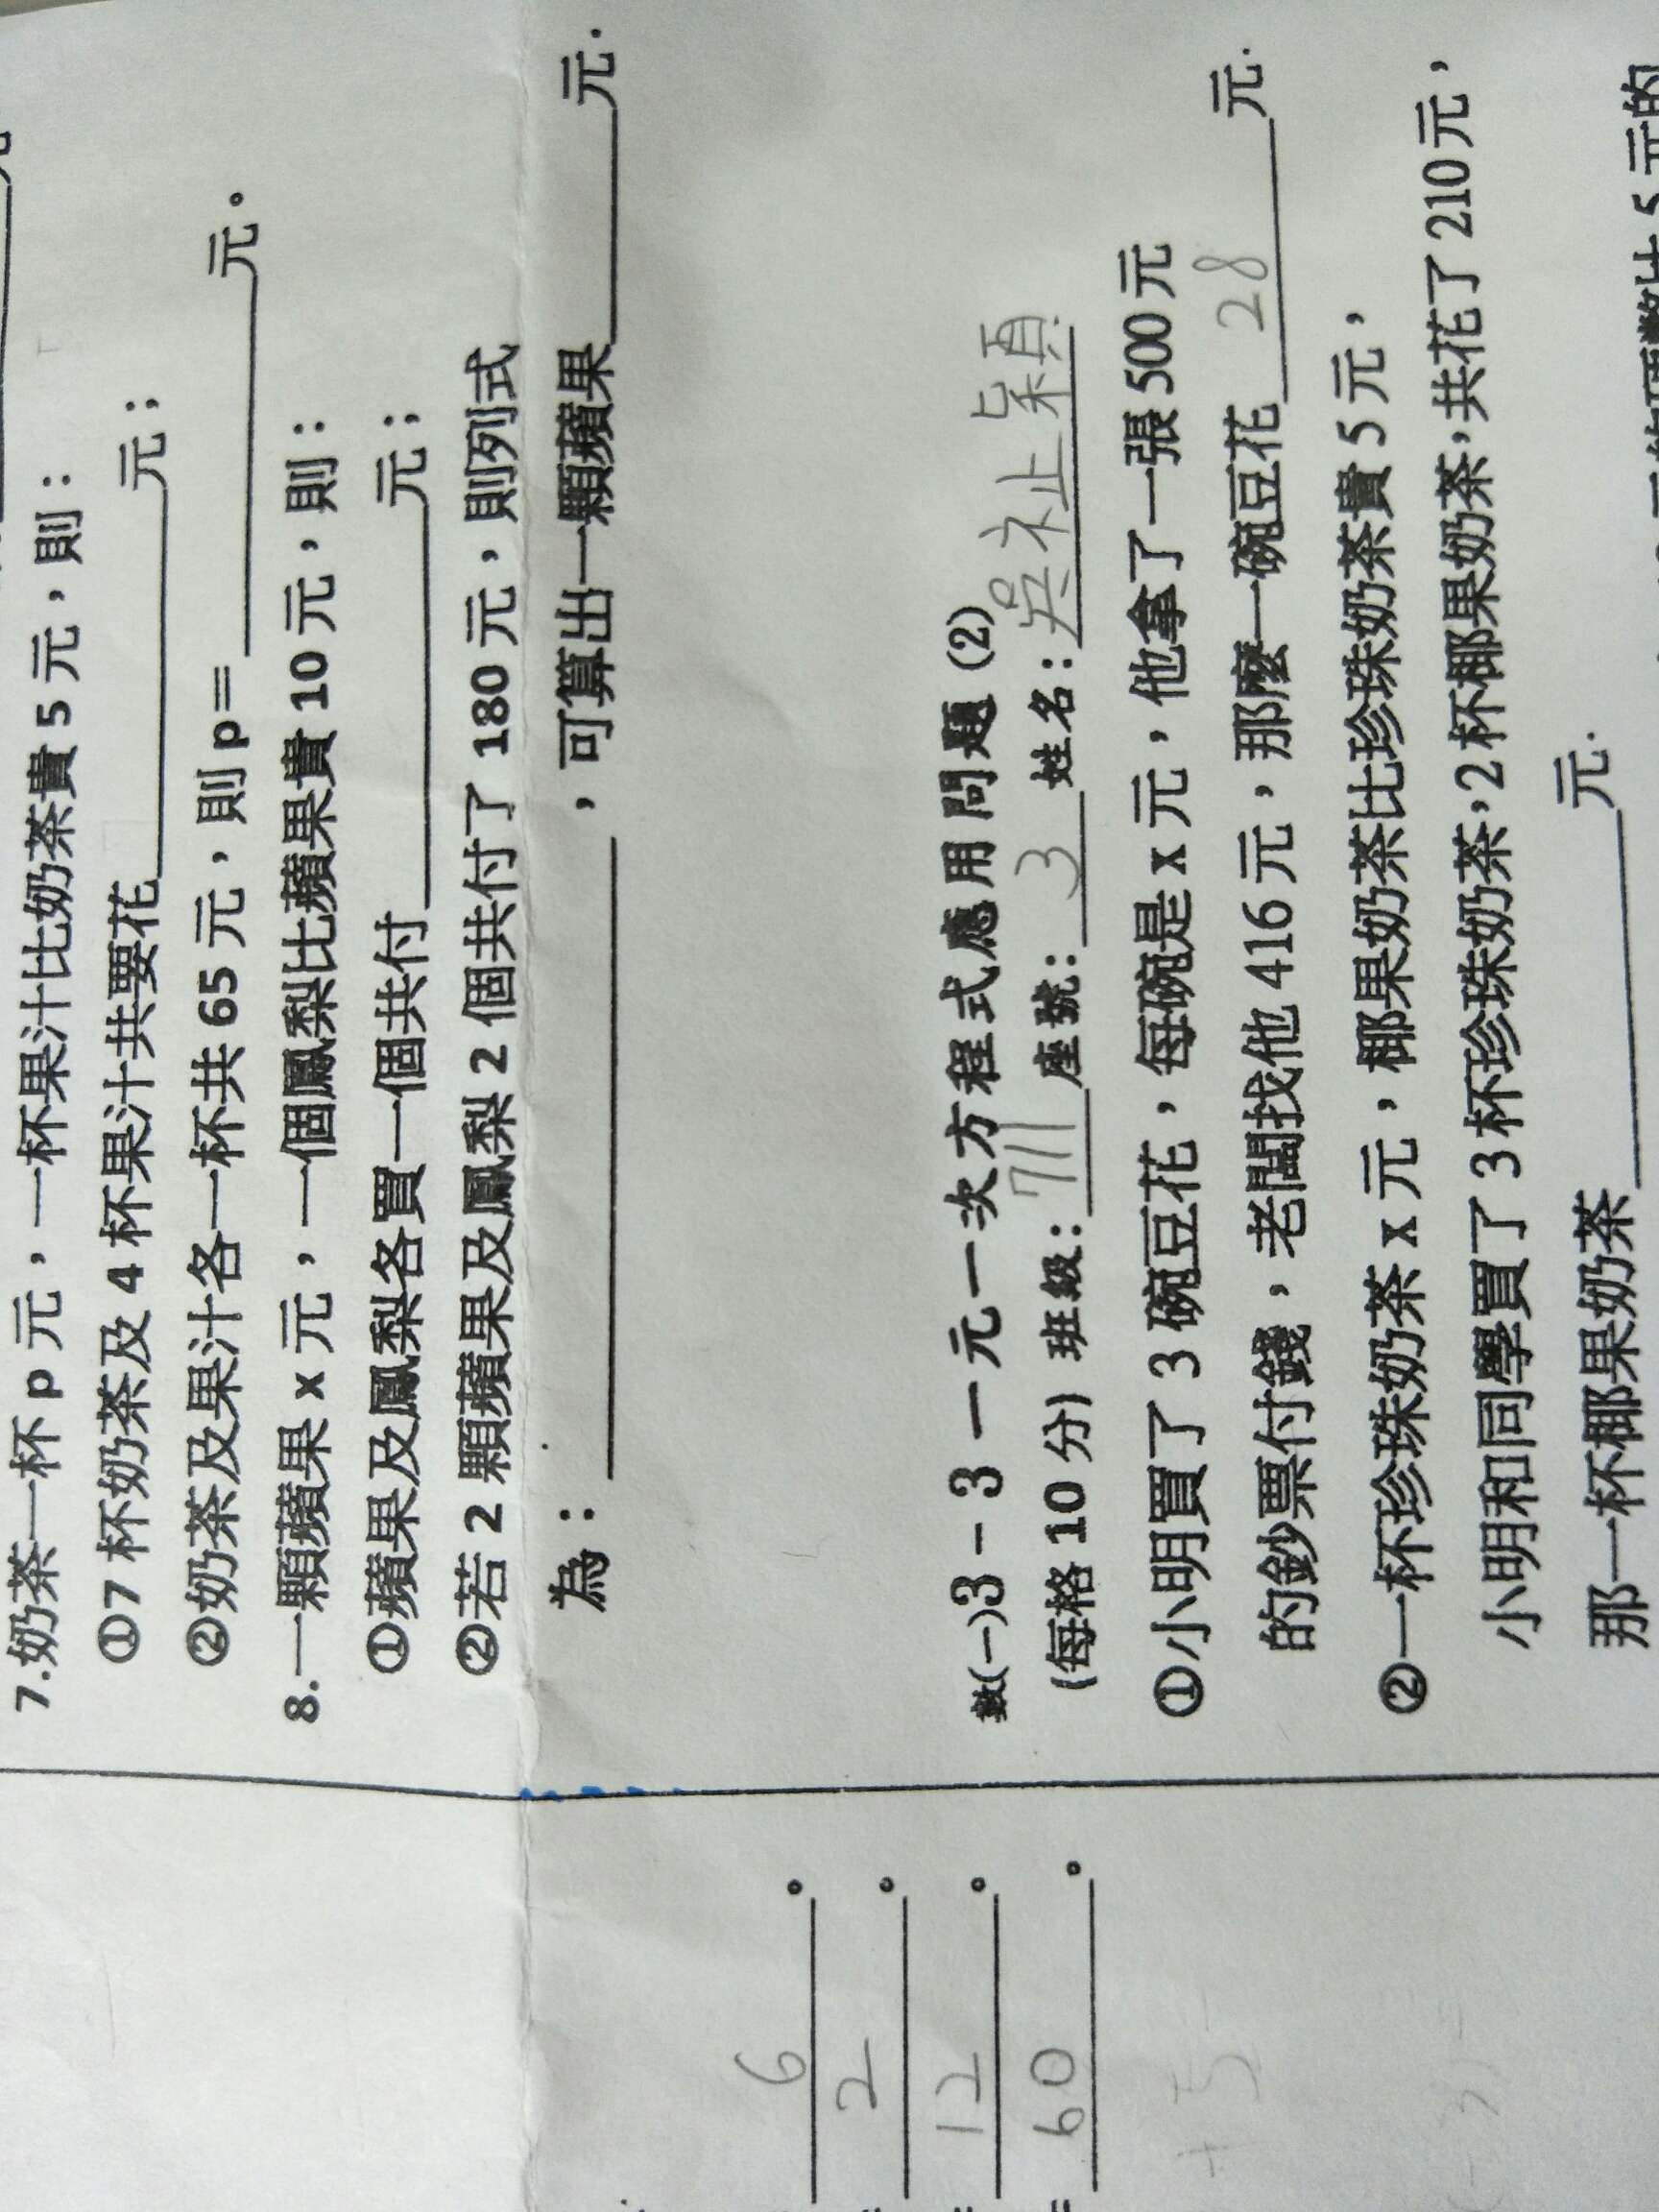 7.奶茶一杯 p 元，一杯果汁比奶茶貴 5 元，則：
①7 杯奶茶及 4 杯果汁共要花 元；
②奶茶及果汁各一杯共 65 元，則 p= 元。
8.一顆蘋果 x 元，一個鳳梨比蘋果貴 10 元，則：
①蘋果及鳳梨各買一個共付 元；
②若 2 顆蘋果及鳳梨 2 個共付了 180 元，則列式
為： ，可算出一顆蘋果 元.
數(一)3－3 一元一次方程式應用問題 (2)
(每格 10 分) 班級：711 座號：3 姓名：吳祉穎
①小明買了 3 碗豆花，每碗是 x 元，他拿了一張 500 元
的鈔票付錢，老闆找他 416 元，那麼一碗豆花 28 元.
②一杯珍珠奶茶 x 元，椰果奶茶比珍珠奶茶貴 5 元，
小明和同學買了 3 杯珍珠奶茶,2 杯椰果奶茶,共花了 210 元，
那一杯椰果奶茶 元.
6。
2。
12。
= 60。